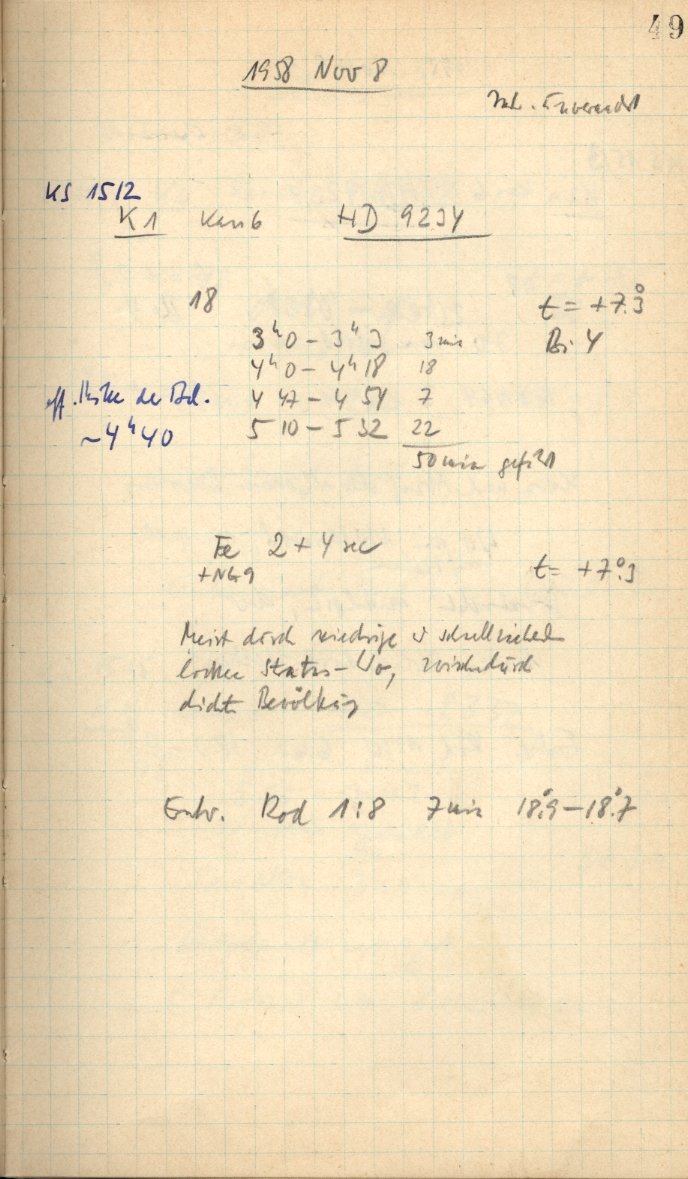 49
1958 Nov 8
unverändert
KS 1512
K1 Kass b HD 9234
18 t = +7°.3
3ʰ0 – 3ʰ3 3min Bi 4
4ʰ0 – 4ʰ18 18
eff. Mitte der Bel. 4 47 – 4 54 7
~4ʰ40 5 10 – 5 32 22
50 min gesamt
Fe 2 + 4 sec
+NG9 t = +7°.3
Meist durch niedrige u schnellziehende
lockere Stratus-Wo, zwischendurch
dichte Bewölkung
Entw. Rod 1:8 7 min 18°.9 – 18°.7